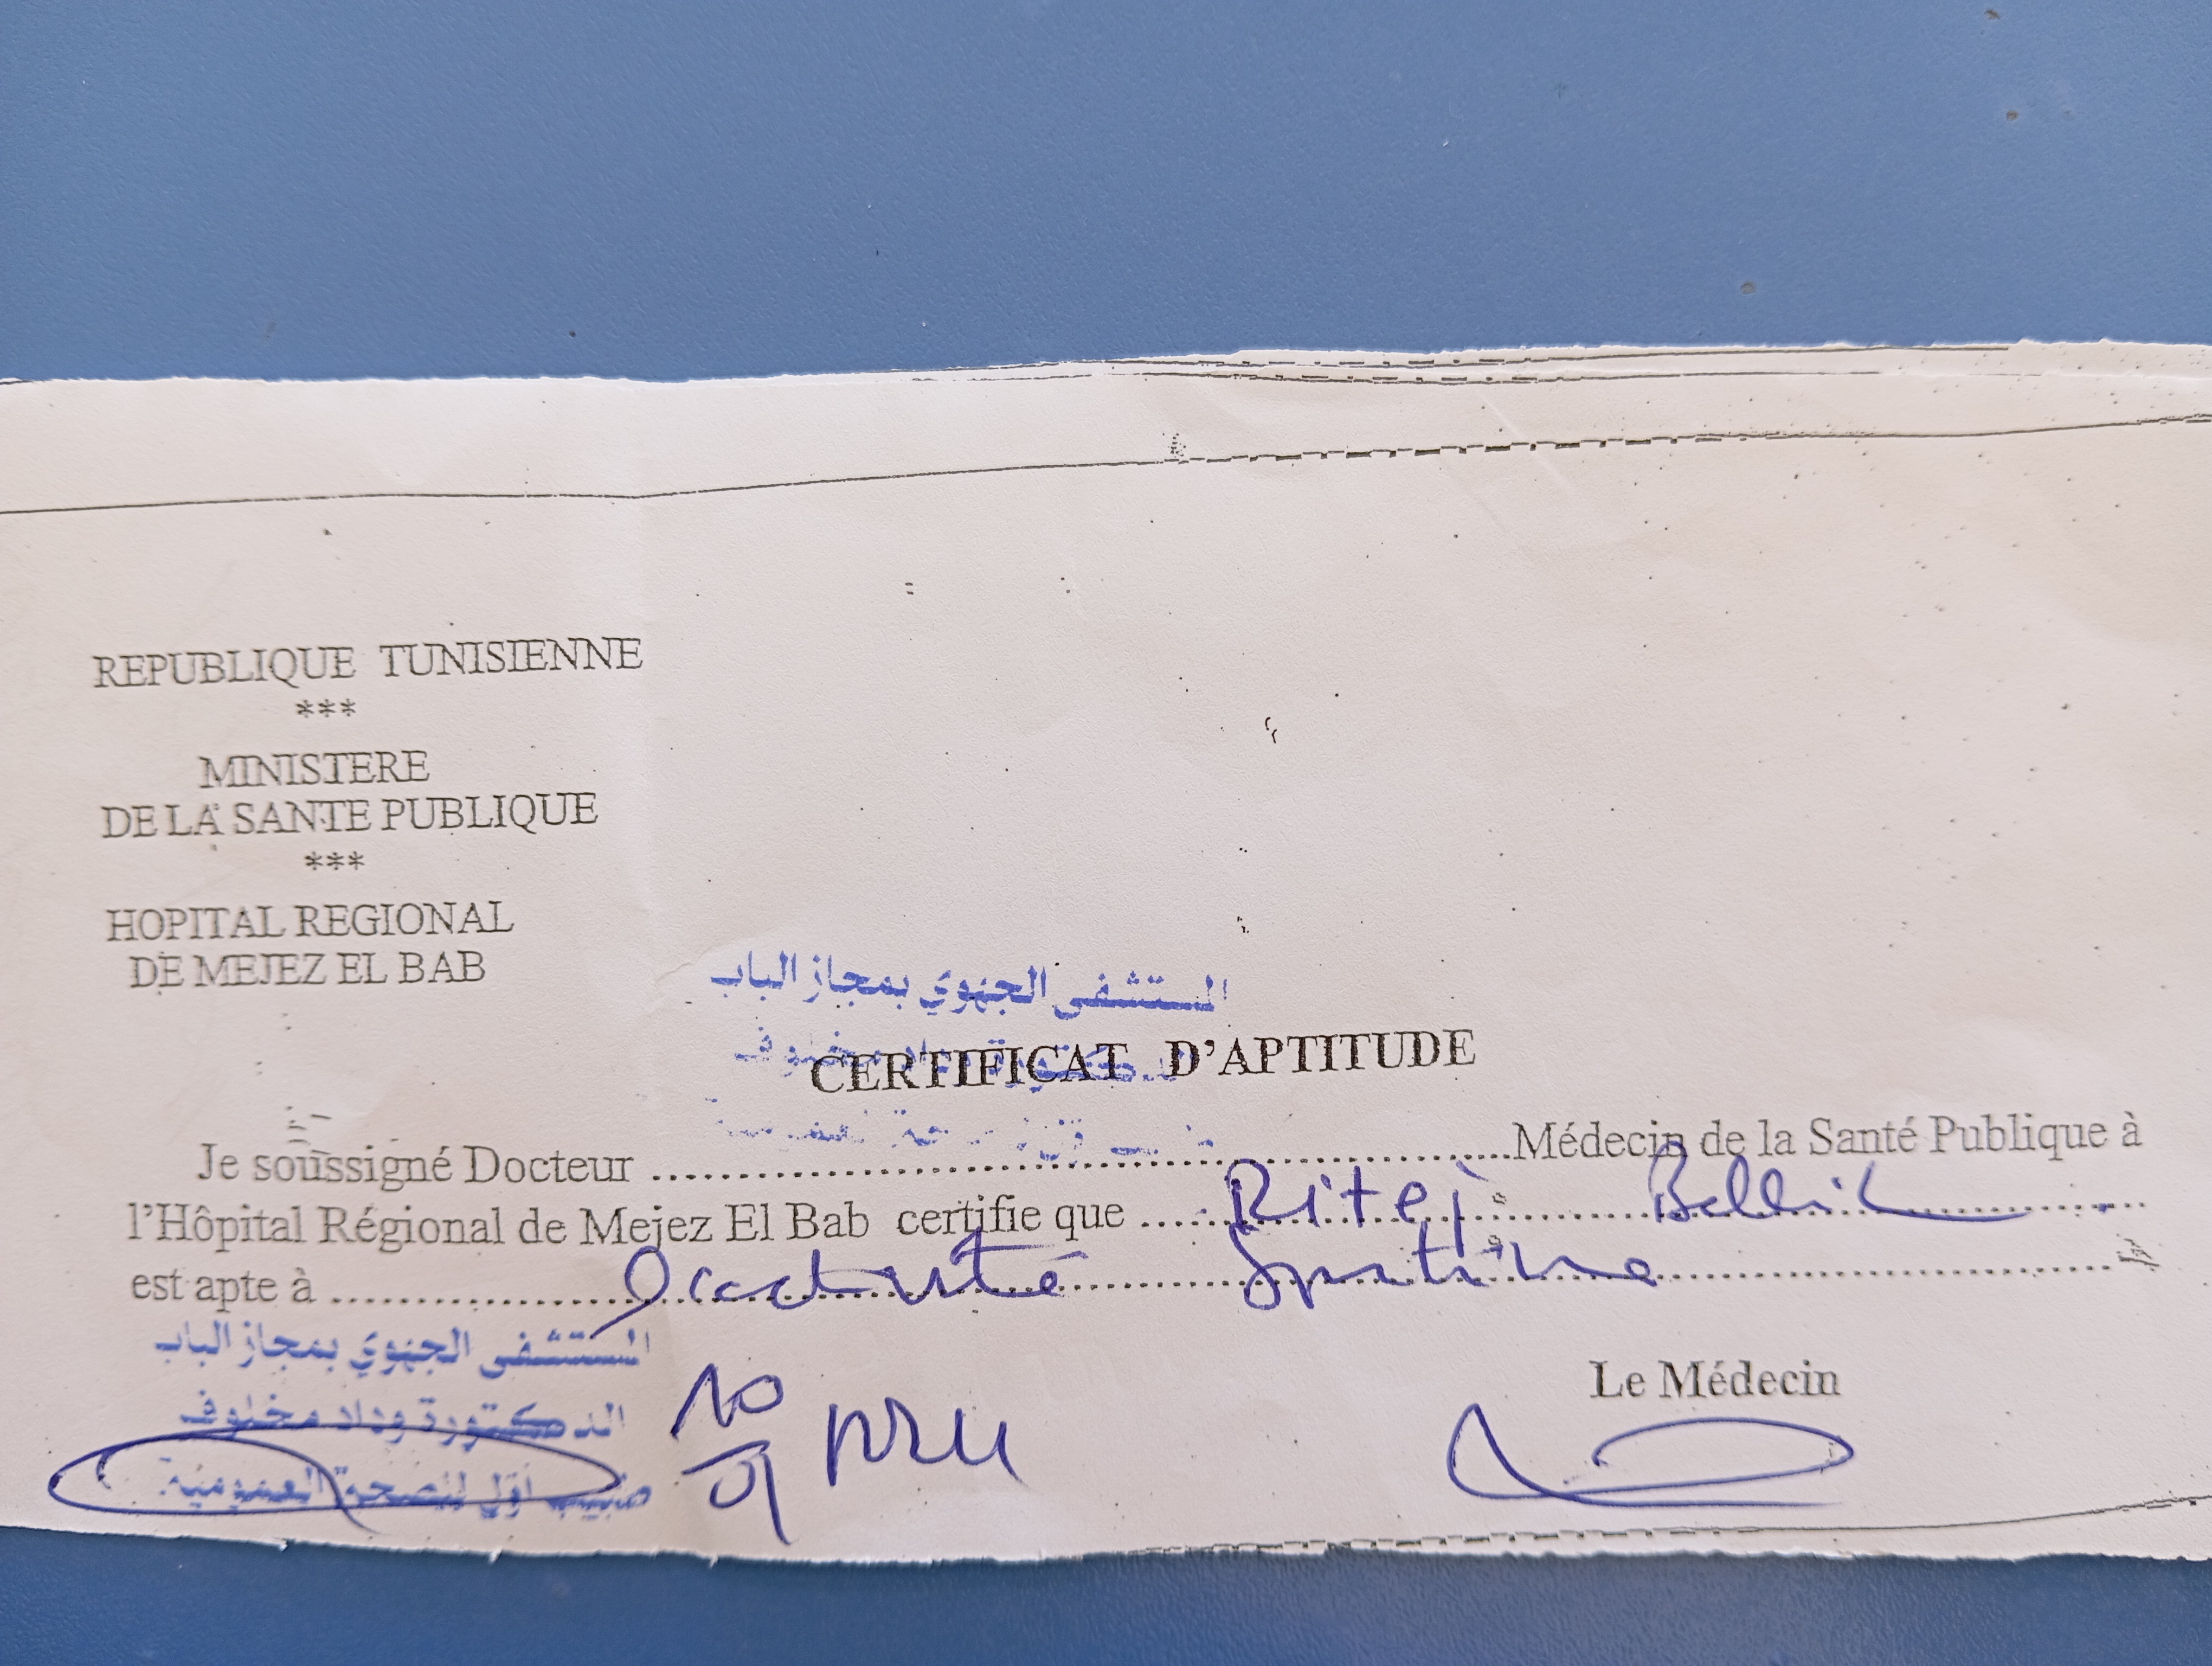 REPUBLIQUE TUNISIENNE
***
MINISTERE
DE LA SANTE PUBLIQUE
***
HOPITAL REGIONAL
DE MEJEZ EL BAB
المستشفى الجهوي بمجاز الباب
CERTIFICAT D'APTITUDE
Je soussigné Docteur ..........Médecin de la Santé Publique à
l'Hôpital Régional de Mejez El Bab certifie que .... Ritej
est apte à ..........
المستشفى الجهوي بمجاز الباب
الدكتورة وداد مخلوف
طبيب أول للصحة العمومية
10
9
Le Médecin